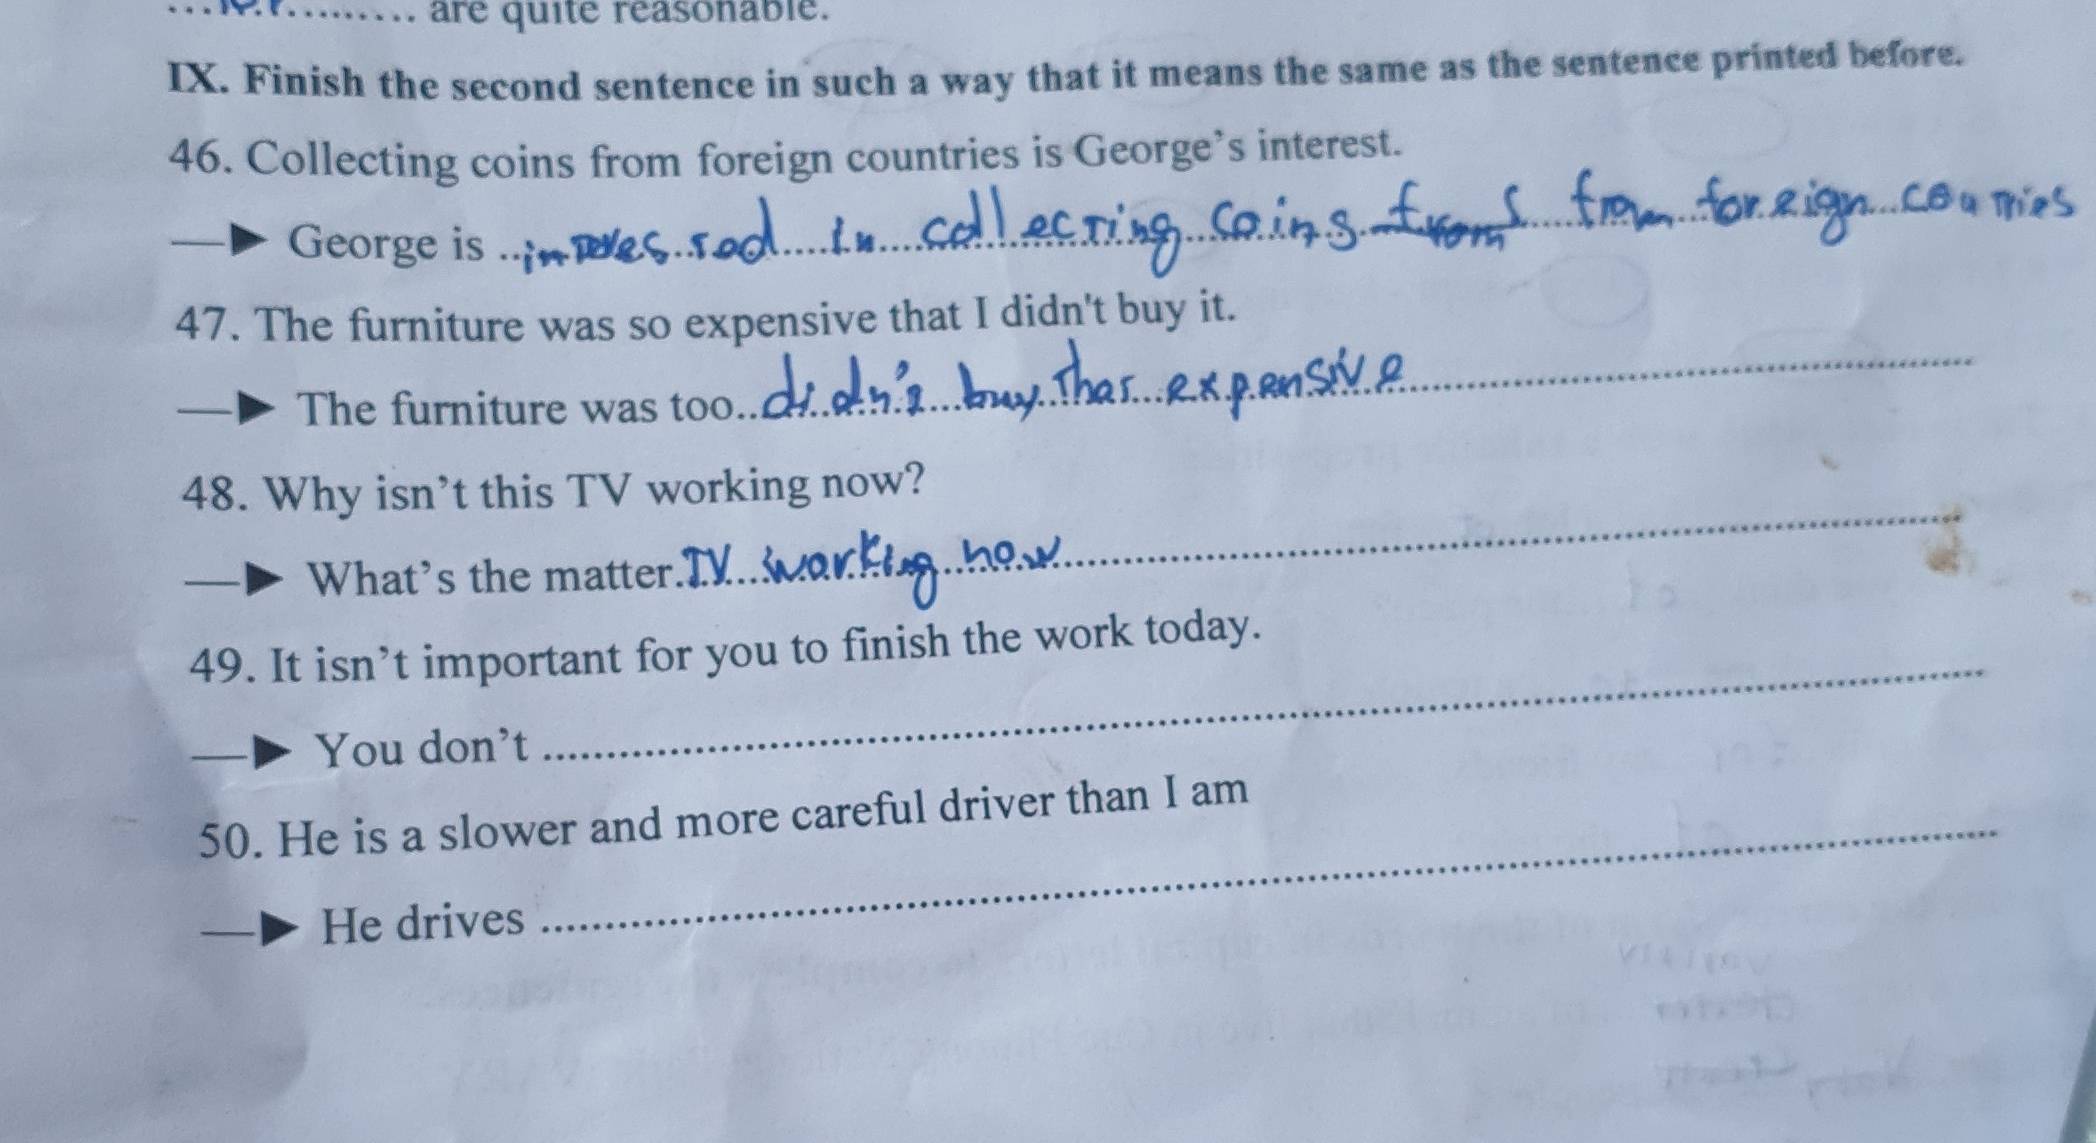 are quite reasonable.
IX. Finish the second sentence in such a way that it means the same as the sentence printed before.
46. Collecting coins from foreign countries is George's interest.
George is interested in collecting coins from from foreign countries
47. The furniture was so expensive that I didn't buy it.
The furniture was too didn't buy that expensive
48. Why isn't this TV working now?
What's the matter TV working now
49. It isn't important for you to finish the work today.
You don't
50. He is a slower and more careful driver than I am
He drives